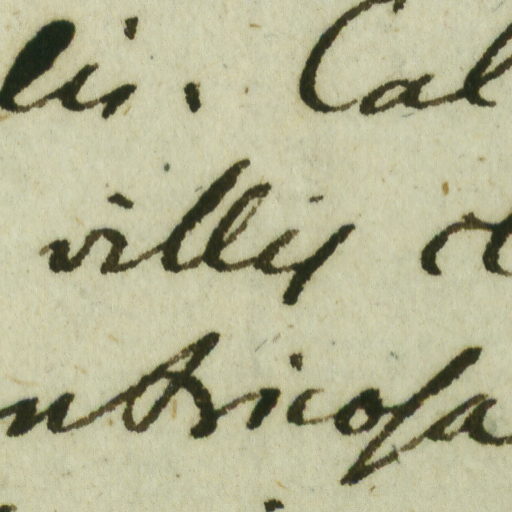 lis. Cal
villis
ntricosa